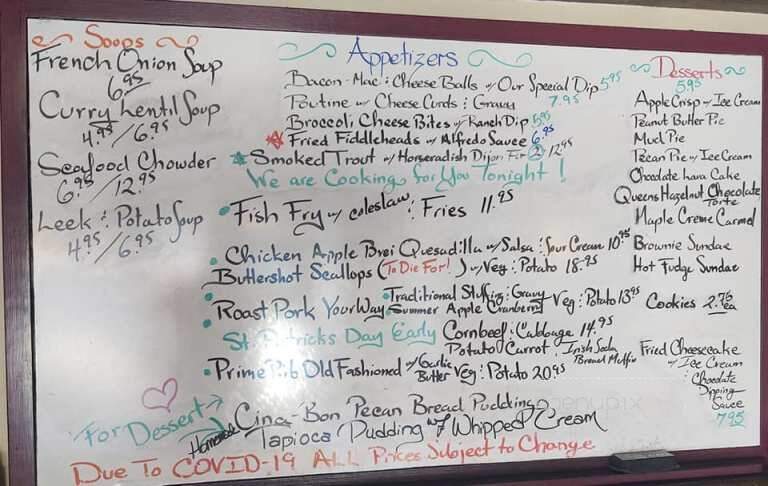 Soops
French Onion Soup
6.95
Curry Lentil Soup
4.95/6.95
Seafood Chowder
6.95/12.95
Leek & Potato Soup
4.95/6.95
Appetizers
Bacon-Mac & Cheese Balls w/ Our Special Dip 5.95
Poutine w/ Cheese Curds & Gravy 7.95
Broccoli Cheese Bites w/ Ranch Dip 5.95
Fried Fiddleheads w/ Alfredo Sauce 6.95
Smoked Trout w/ Horseradish Dijon For 2 12.95
We are Cooking for You Tonight!
Fish Fry w/ coleslaw & Fries 11.95
Chicken Apple Brei Quesadilla w/ Salsa & Sour Cream 10.95
Buttershot Scallops (To Die For!) w/ Veg & Potato 18.95
Roast Pork Your Way
Traditional Stuffing & Gravy
Summer Apple Cranberry
Veg & Potato 13.95
St. Patricks Day Early Cornbeef & Cabbage 14.95
Potato Carrot, Irish Soda
Bread Muffin
Prime Rib Old Fashioned w/ Garlic
Butter Veg & Potato 20.95
For Dessert
Homemade Cina-Bon Pecan Bread Pudding
Tapioca Pudding w/ Whipped Cream
Due To COVID-19 ALL Prices Subject to Change
Desserts
5.95
Apple Crisp w/ Ice Cream
Peanut Butter Pie
Mud Pie
Pecan Pie w/ Ice Cream
Chocolate Lava Cake
Queens Hazelnut Chocolate
Torte
Maple Creme Carmel
Brownie Sundae
Hot Fudge Sundae
Cookies 2.75
ea
Fried Cheesecake
w/ Ice Cream
& Chocolate
Dipping
Sauce
7.95